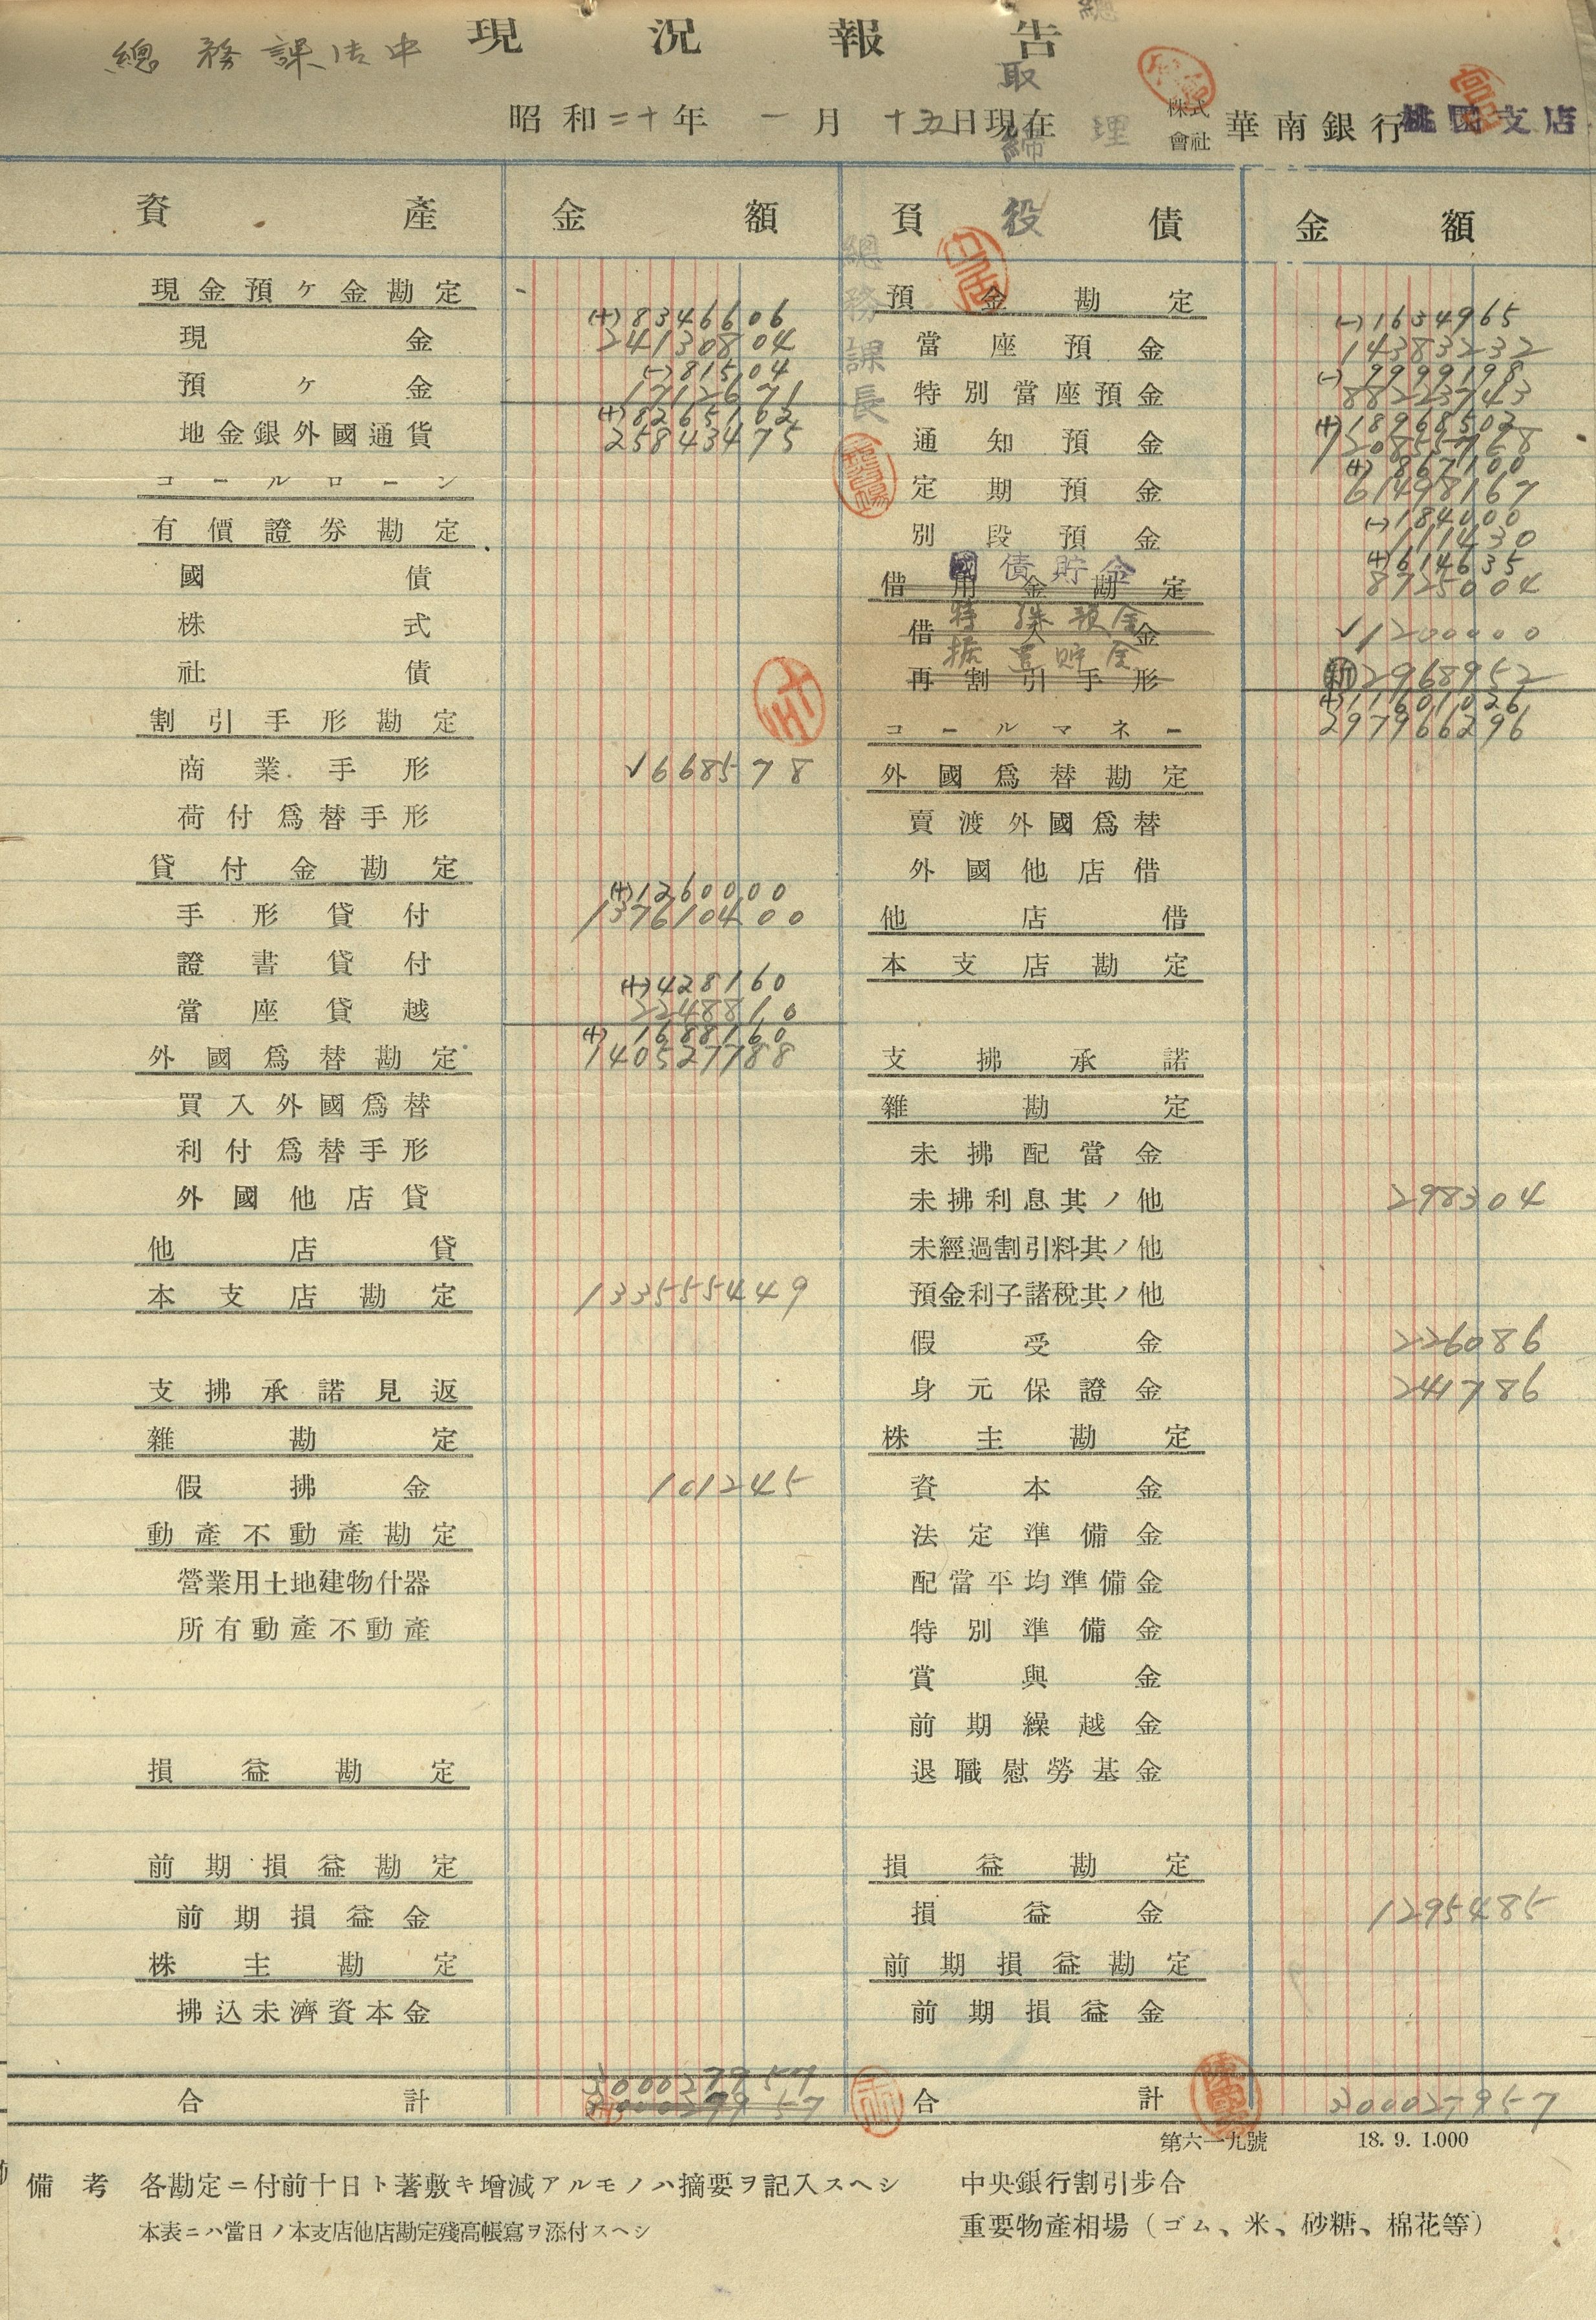 現況報告
總務課御中
昭和二十年一月十五日現在
株式會社 華南銀行桃園支店
取締役
總務課長
資產 金額 負債 金額
現金預ケ金勘定
現金 (+)8346606
24130804
預ケ金 (-)81504
1712671
地金銀外國通貨 (+)8265102
25843475
コールローン
有價證券勘定
國債
株式
社債
割引手形勘定
商業手形 ✓668578
荷付爲替手形
貸付金勘定
手形貸付 (+)1260000
137610400
證書貸付
當座貸越 (+)428160
2248810
(+)1688160
140527788
外國爲替勘定
買入外國爲替
利付爲替手形
外國他店貸
他店貸
本支店勘定 133555449
支拂承諾見返
雜勘定
假拂金 101245
動產不動產勘定
營業用土地建物什器
所有動產不動產
損益勘定
前期損益勘定
前期損益金
株主勘定
拂込未濟資本金
合計 300027957
預金勘定
當座預金 (-)1634965
14383232
特別當座預金 (-)9999198
88223743
通知預金 (+)18968502
定期預金 (+)867100
61498167
別段預金 (-)184000
111430
國債貯金 (+)614635
8725004
借用金勘定
特殊預金 ✓1200000
借入金
据置貯金 新2968952
再割引手形
(+)11601026
297966296
コールマネー
外國爲替勘定
賣渡外國爲替
外國他店借
他店借
本支店勘定
支拂承諾
雜勘定
未拂配當金
未拂利息其ノ他 298304
未經過割引料其ノ他
預金利子諸稅其ノ他
假受金 226086
身元保證金 241786
株主勘定
資本金
法定準備金
配當平均準備金
特別準備金
賞與金
前期繰越金
退職慰勞基金
損益勘定
損益金 1295485
前期損益勘定
前期損益金
合計 300027957
第六一九號 18. 9. 1.000
備考 各勘定ニ付前十日ト著敷キ增減アルモノハ摘要ヲ記入スヘシ
本表ニハ當日ノ本支店他店勘定殘高帳寫ヲ添付スヘシ
中央銀行割引步合
重要物產相場（ゴム、米、砂糖、棉花等）